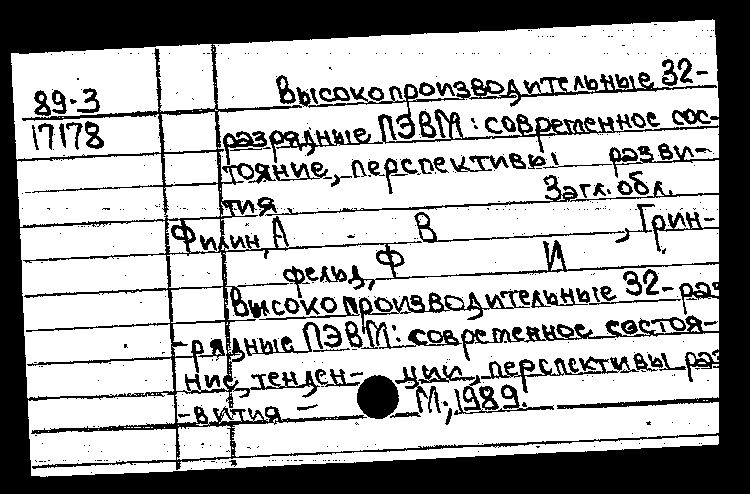 89-3
17178
Высокопроизводительные 32-
разрядные ПЭВМ: современное сос-
тояние, перспективы разви-
тия. Загл. обл.
Филин, А В , Грин-
фельд, Ф И
Высокопроизводительные 32-раз
-рядные ПЭВМ: современное состоя-
ние, тенден- ции, перспективы раз
-вития - М., 1989.